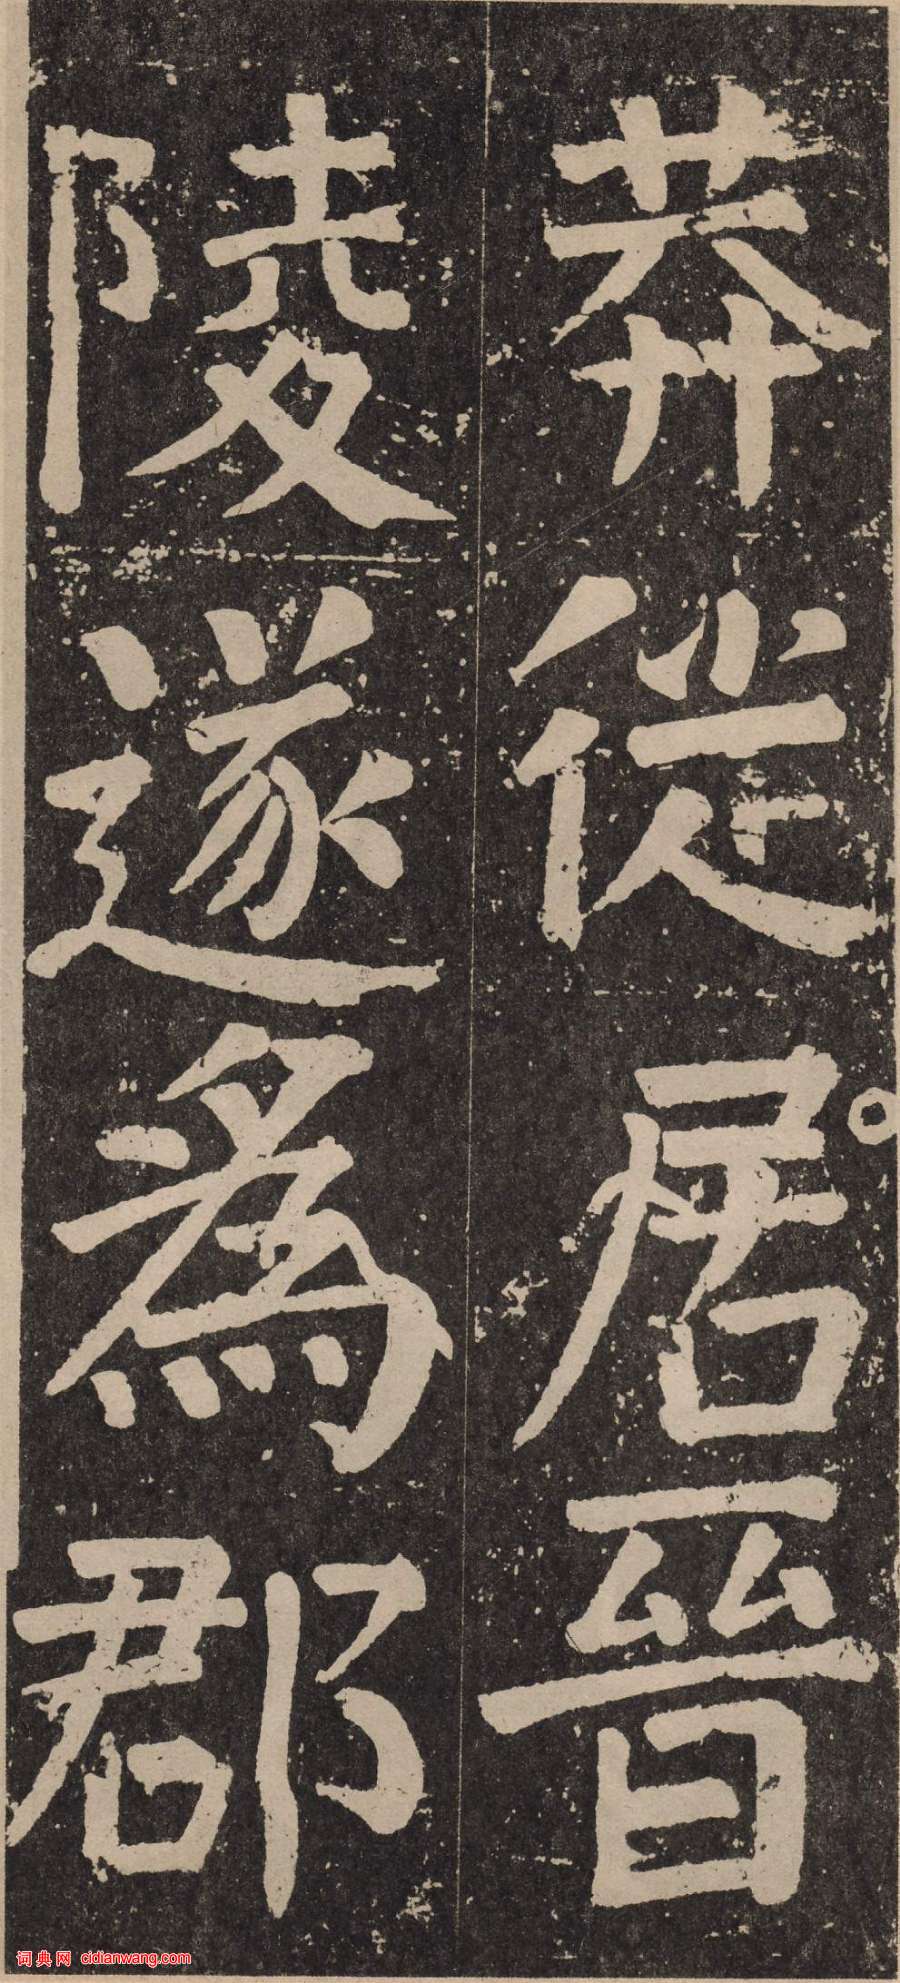 莽從居晉
陵遂為郡
词典网 cidianwang.com